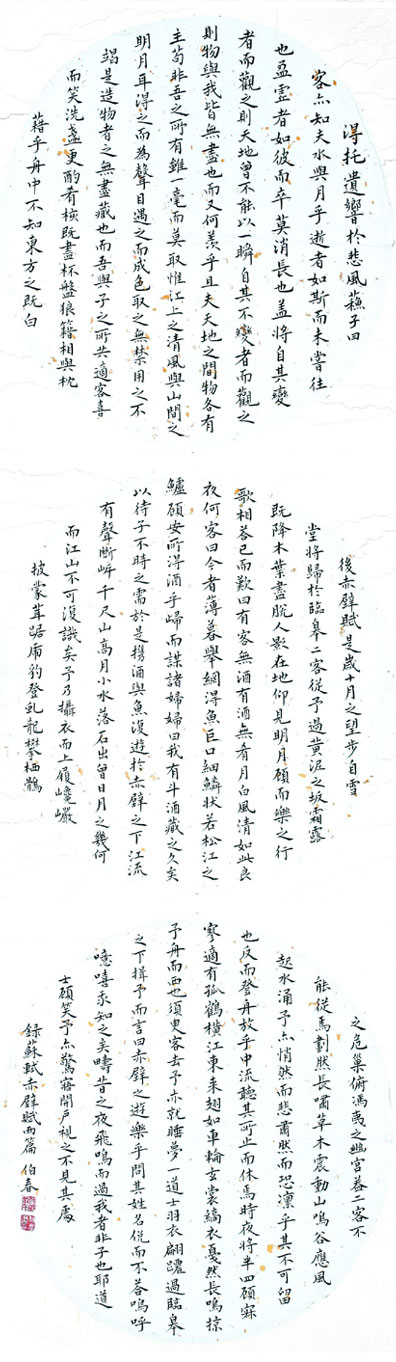 得托遺響於悲風蘇子曰
客亦知夫水與月乎逝者如斯而未嘗往
也盈虛者如彼而卒莫消長也蓋將自其變
者而觀之則天地曾不能以一瞬自其不變者而觀之
則物與我皆無盡也而又何羨乎且夫天地之間物各有
主苟非吾之所有雖一毫而莫取惟江上之清風與山間之
明月耳得之而為聲目遇之而成色取之無禁用之不
竭是造物者之無盡藏也而吾與子之所共適客喜
而笑洗盞更酌肴核既盡杯盤狼籍相與枕
藉乎舟中不知東方之既白
後赤壁賦是歲十月之望步自雪
堂將歸於臨皋二客從予過黃泥之坂霜露
既降木葉盡脫人影在地仰見明月顧而樂之行
歌相答已而歎曰有客無酒有酒無肴月白風清如此良
夜何客曰今者薄暮舉網得魚巨口細鱗狀若松江之
鱸顧安所得酒乎歸而謀諸婦婦曰我有斗酒藏之久矣
以待子不時之需於是攜酒與魚復遊於赤壁之下江流
有聲斷岸千尺山高月小水落石出曾日月之幾何
而江山不可復識矣予乃攝衣而上履巉巖
披蒙茸踞虎豹登虬龍攀栖鶻
之危巢俯馮夷之幽宮蓋二客不
能從焉劃然長嘯草木震動山鳴谷應風
起水涌予亦悄然而悲肅然而恐凜乎其不可留
也反而登舟放乎中流聽其所止而休焉時夜將半四顧寂
寥適有孤鶴橫江東來翅如車輪玄裳縞衣戛然長鳴掠
予舟而西也須臾客去予亦就睡夢一道士羽衣翩躚過臨皋
之下揖予而言曰赤壁之遊樂乎問其姓名俛而不答嗚呼
噫嘻我知之矣疇昔之夜飛鳴而過我者非子也耶道
士顧笑予亦驚寤開戶視之不見其處
錄蘇賦赤壁賦兩篇 伯春